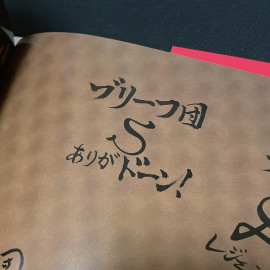 ブリーフ団
S
ありがドーン!
レジェ